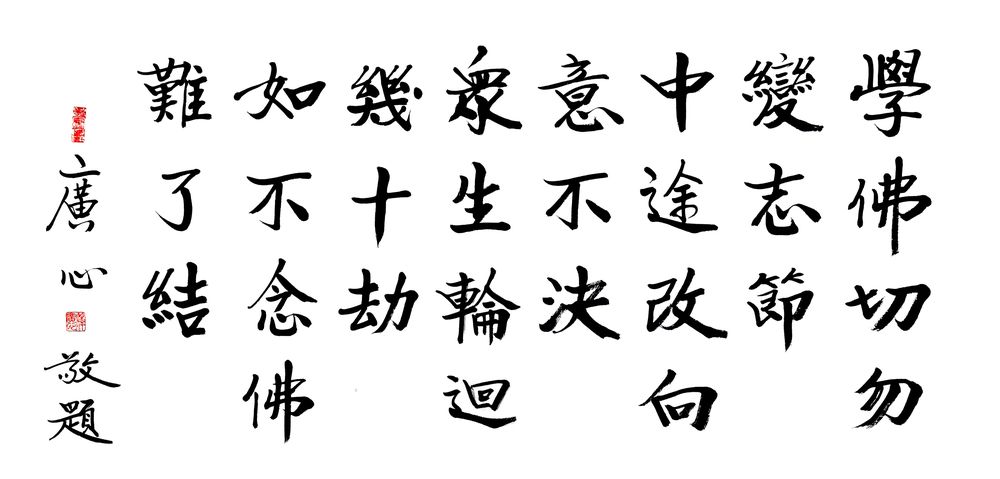 學佛切勿
變志節
中途改向
意不決
眾生輪迴
幾十劫
如不念佛
難了結
廣心敬題